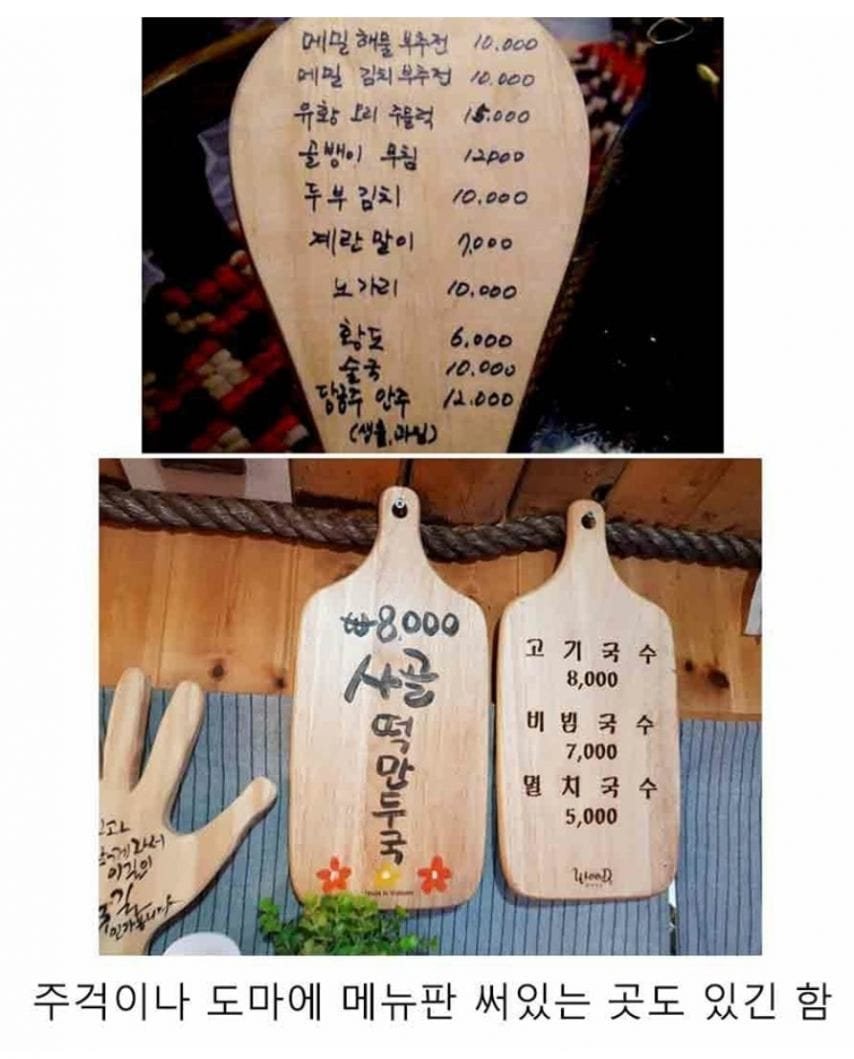 메밀 해물 부추전 10.000
메밀 김치부추전 10.000
유황 오리 주물럭 15.000
골뱅이 무침 12000
두부 김치 10.000
계란 말이 7,000
노가리 10.000
황도 6.000
술국 10.000
담금주 안주 12.000
₩8.000
사골
떡
만
두
국
고기국수
8,000
비빔국수
7,000
멸치국수
5,000
주걱이나 도마에 메뉴판 써있는 곳도 있긴 함